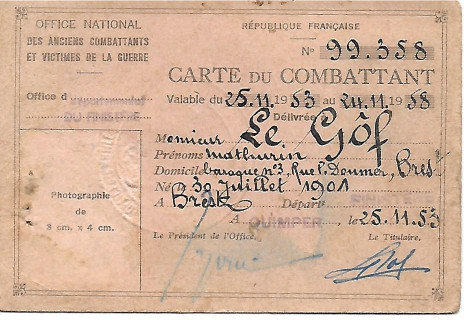 OFFICE NATIONAL
DES ANCIENS COMBATTANTS
ET VICTIMES DE LA GUERRE
Office d
DU FINISTÈRE
RÉPUBLIQUE FRANÇAISE
No 99.358
CARTE DU COMBATTANT
Valable du 25.11.1953 au 24.11.1958
Délivrée
Monsieur Le Gôf
Prénoms Mathurin
Domicile baraque n°3, Rue P. Doumer, Brest
Né le 30 Juillet 1901
A Brest Départ
A QUIMPER le 25.11.53
Le Président de l'Office, Le Titulaire,
Photographie
de
3 cm. x 4 cm.